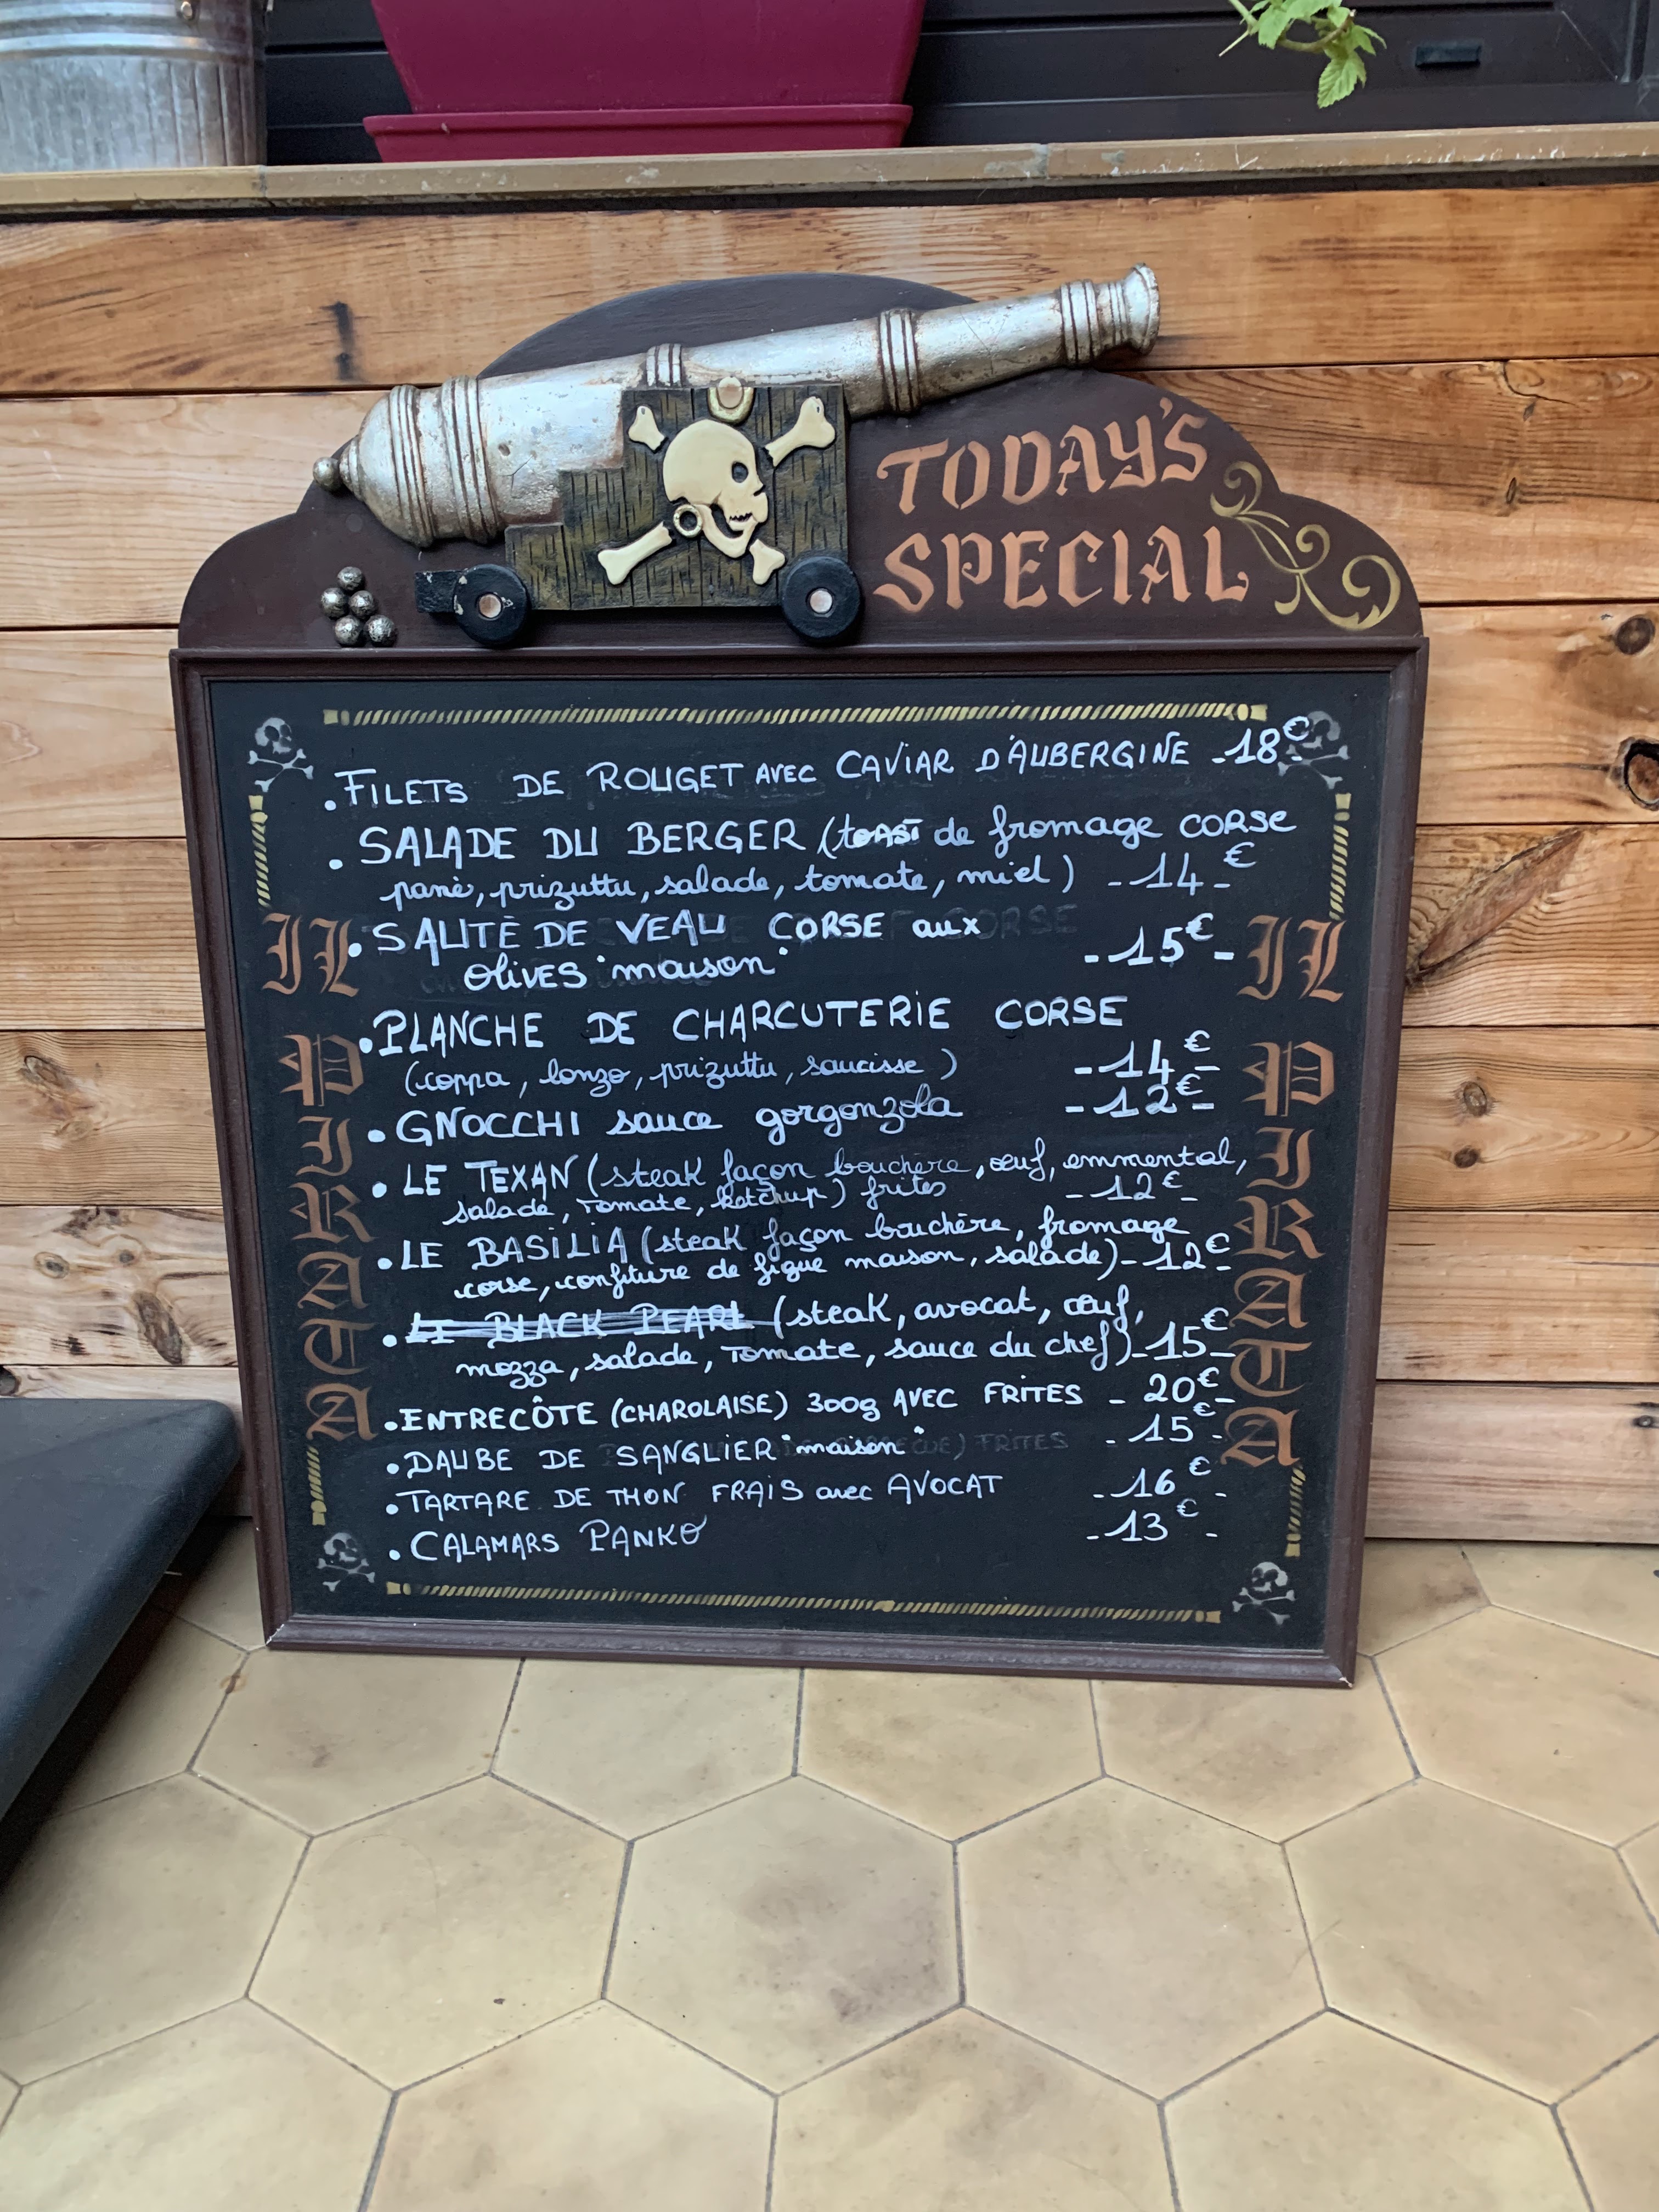 TODAY'S
SPECIAL
IL PIRATA
IL PIRATA
.FILETS DE ROUGET AVEC CAVIAR D'AUBERGINE -18€-
. SALADE DU BERGER (toAST de fromage CORSE
pané, prizuttu, salade, tomate, miel) -14€-
. SAUTÉ DE VEAU CORSE aux
OliVES "maison" -15€-
.PLANCHE DE CHARCUTERIE CORSE
(coppa, lonzo, prizuttu, saucisse) -14€-
. GNOCCHI sauce gorgonzola -12€-
. LE TEXAN (steak façon bouchère, œuf, emmental,
salade, Tomate, ketchup) frites -12€-
.LE BASILIA (steak façon bouchère, fromage
corse, confiture de figue maison, salade) -12€-
. LE BLACK PEARL (steak, avocat, œuf,
mozza, salade, Tomate, sauce du chef) -15€-
.ENTRECÔTE (CHAROLAISE) 300g AVEC FRITES - 20€-
.DAUBE DE SANGLIER "maison" - 15€-
.TARTARE DE THON FRAIS avec AVOCAT -16€-
. CALAMARS PANKO -13€-